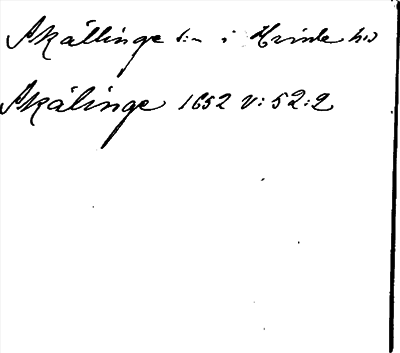 Skållinge s:n i Himle hd
Skålinge 1652 V:52:2